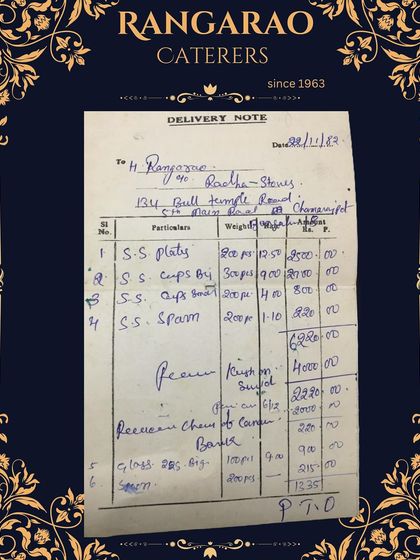 RANGARAO
CATERERS
since 1963
DELIVERY NOTE
Date 22/11/82
To H Rangarao
c/o Radha-Stores
134 Bull temple Road
5th Main Road Chamarajpet
Sl No. Particulars Weight Rate Amount Rs. P.
1 S.S. Plates 200 pcs 12.50 2500.00
2 S.S. Cups Big 300 pcs 9.00 2700.00
3 S.S. Cups Small 200 pc 4.00 800.00
4 S.S. Spoon 200 pc 1.10 220.00
6220.00
4000.00
2220.00
6/12 2000.00
220.00
Bank
5 Glass Big 100 pcs 9.00 900.00
6. 200 pcs 215.00
1335
P T O